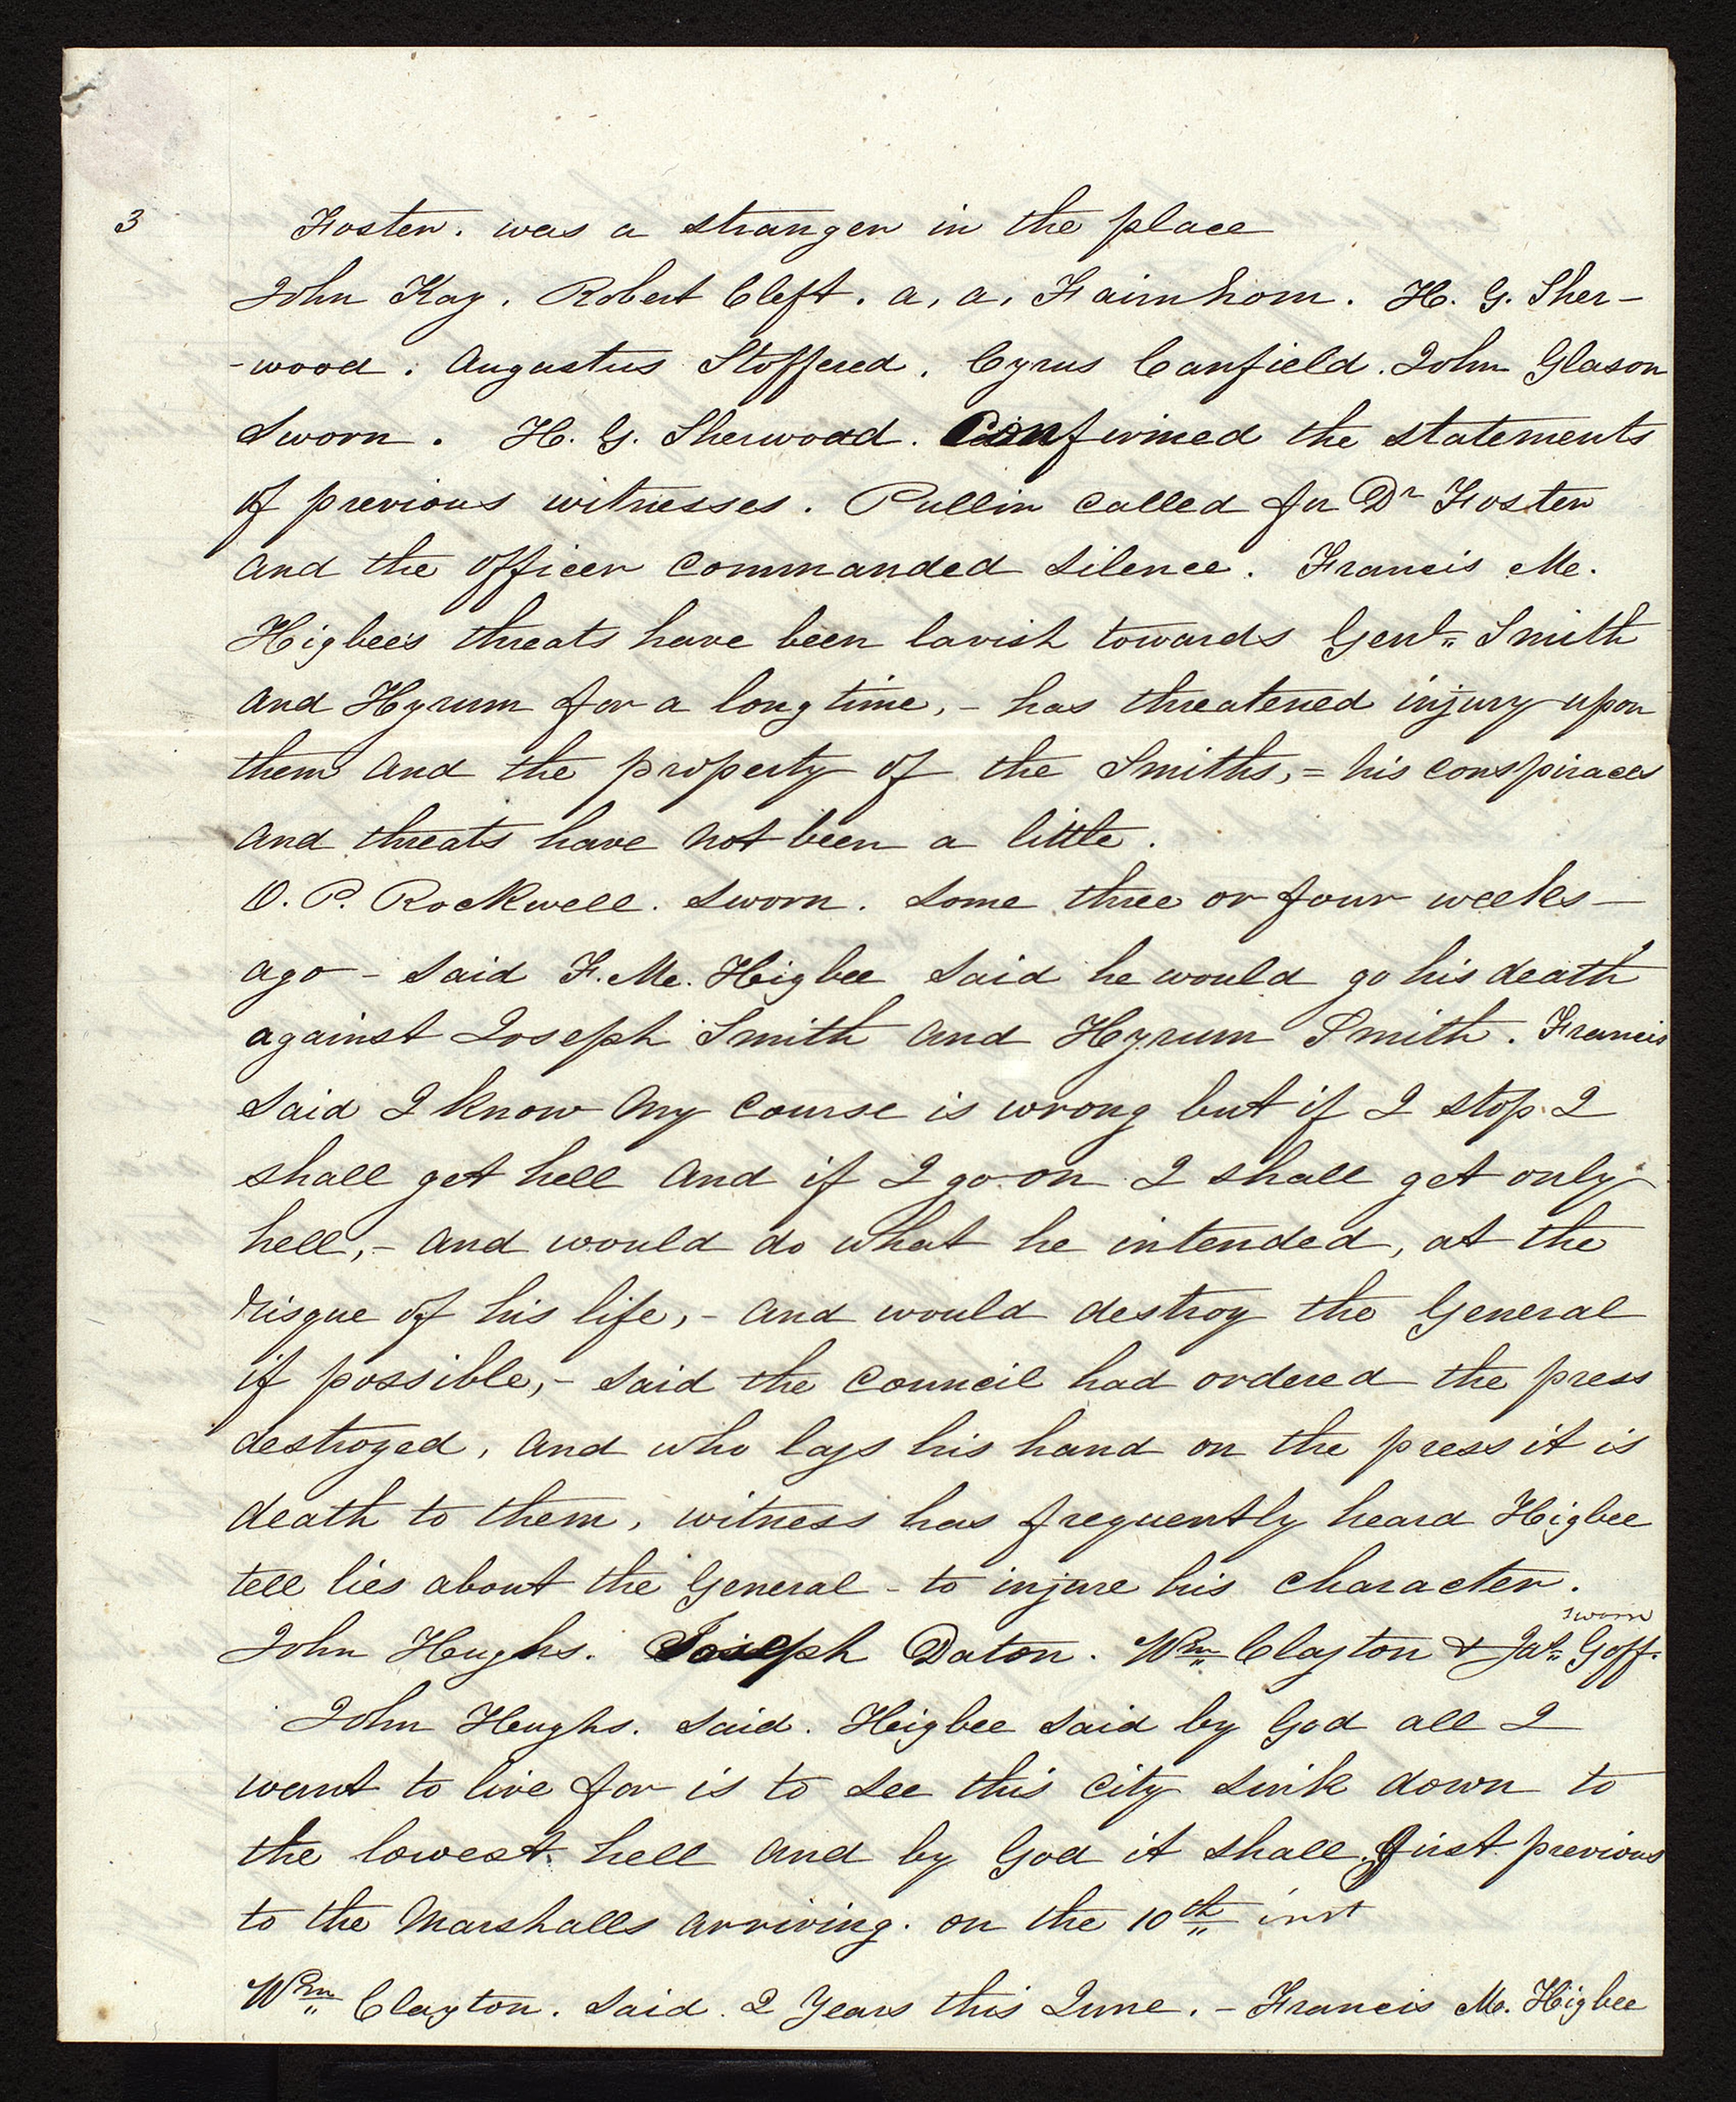 3
Foster. was a stranger in the place
John Kay. Robert Cleft. a, a, Fairnhom. H. G. Sher-
-wood. Augustus Stoffered. Cyrus Canfield. John Glason
Sworn. H. G. Sherwood. Confirmed the statements
of previous witnesses. Pullin called for Dr Foster
and the officer commanded silence. Francis M.
Higbee's threats have been lavish towards Genl" Smith
and Hyrum for a long time, - has threatened injury upon
them and the property of the Smiths, = his conspiraces
and threats have not been a little.
O. P. Rockwell. sworn. some three or four weeks -
ago - said F. M. Higbee said he would go his death
against Joseph Smith and Hyrum Smith. Francis
said I know my course is wrong but if I stop I
shall get hell and if I go on I shall get only
hell, - and would do what he intended, at the
risque of his life, - and would destroy the General
if possible, - said the council had ordered the press
destroyed, and who lays his hand on the press it is
death to them, witness has frequently heard Higbee
tell lies about the General - to injure his character.
sworn
John Hughs. Joseph Daton. Wm" Clayton & Jas" Goff.
John Heughs. said. Higbee said by God all I
want to live for is to see this city sink down to
the lowest hell and by God it shall. Just previous
to the Marshalls arriving. on the 10th" inst
Wm" Clayton. said. 2 Years this June. - Francis M. Higbee